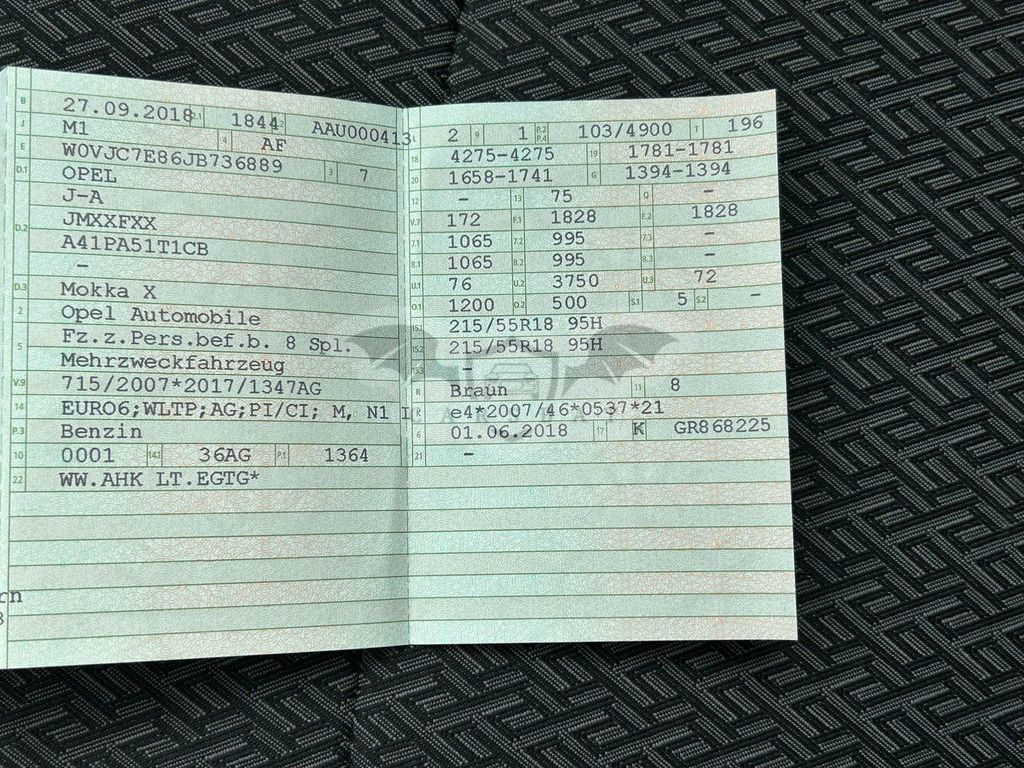 B 27.09.2018 2.1 1844 2.2 AAU000413
J M1 4 AF
E W0VJC7E86JB736889 3 7
D.1 OPEL
J-A
D.2 JMXXFXX
A41PA51T1CB
-
D.3 Mokka X
2 Opel Automobile
5 Fz.z.Pers.bef.b. 8 Spl.
Mehrzweckfahrzeug
V.9 715/2007*2017/1347AG
14 EURO6;WLTP;AG;PI/CI; M, N1 I
P.3 Benzin
10 0001 14.1 36AG P.1 1364
22 WW.AHK LT.EGTG*
L 2 9 1 P.2 P.4 103/4900 T 196
18 4275-4275 19 1781-1781
20 1658-1741 G 1394-1394
12 - 13 75 Q -
V.7 172 F.1 1828 F.2 1828
7.1 1065 7.2 995 7.3 -
8.1 1065 8.2 995 8.3 -
U.1 76 U.2 3750 U.3 72
O.1 1200 O.2 500 S.1 5 S.2 -
15.1 215/55R18 95H
15.2 215/55R18 95H
15.3 -
R Braun 11 8
K e4*2007/46*0537*21
6 01.06.2018 17 K GR868225
21 -